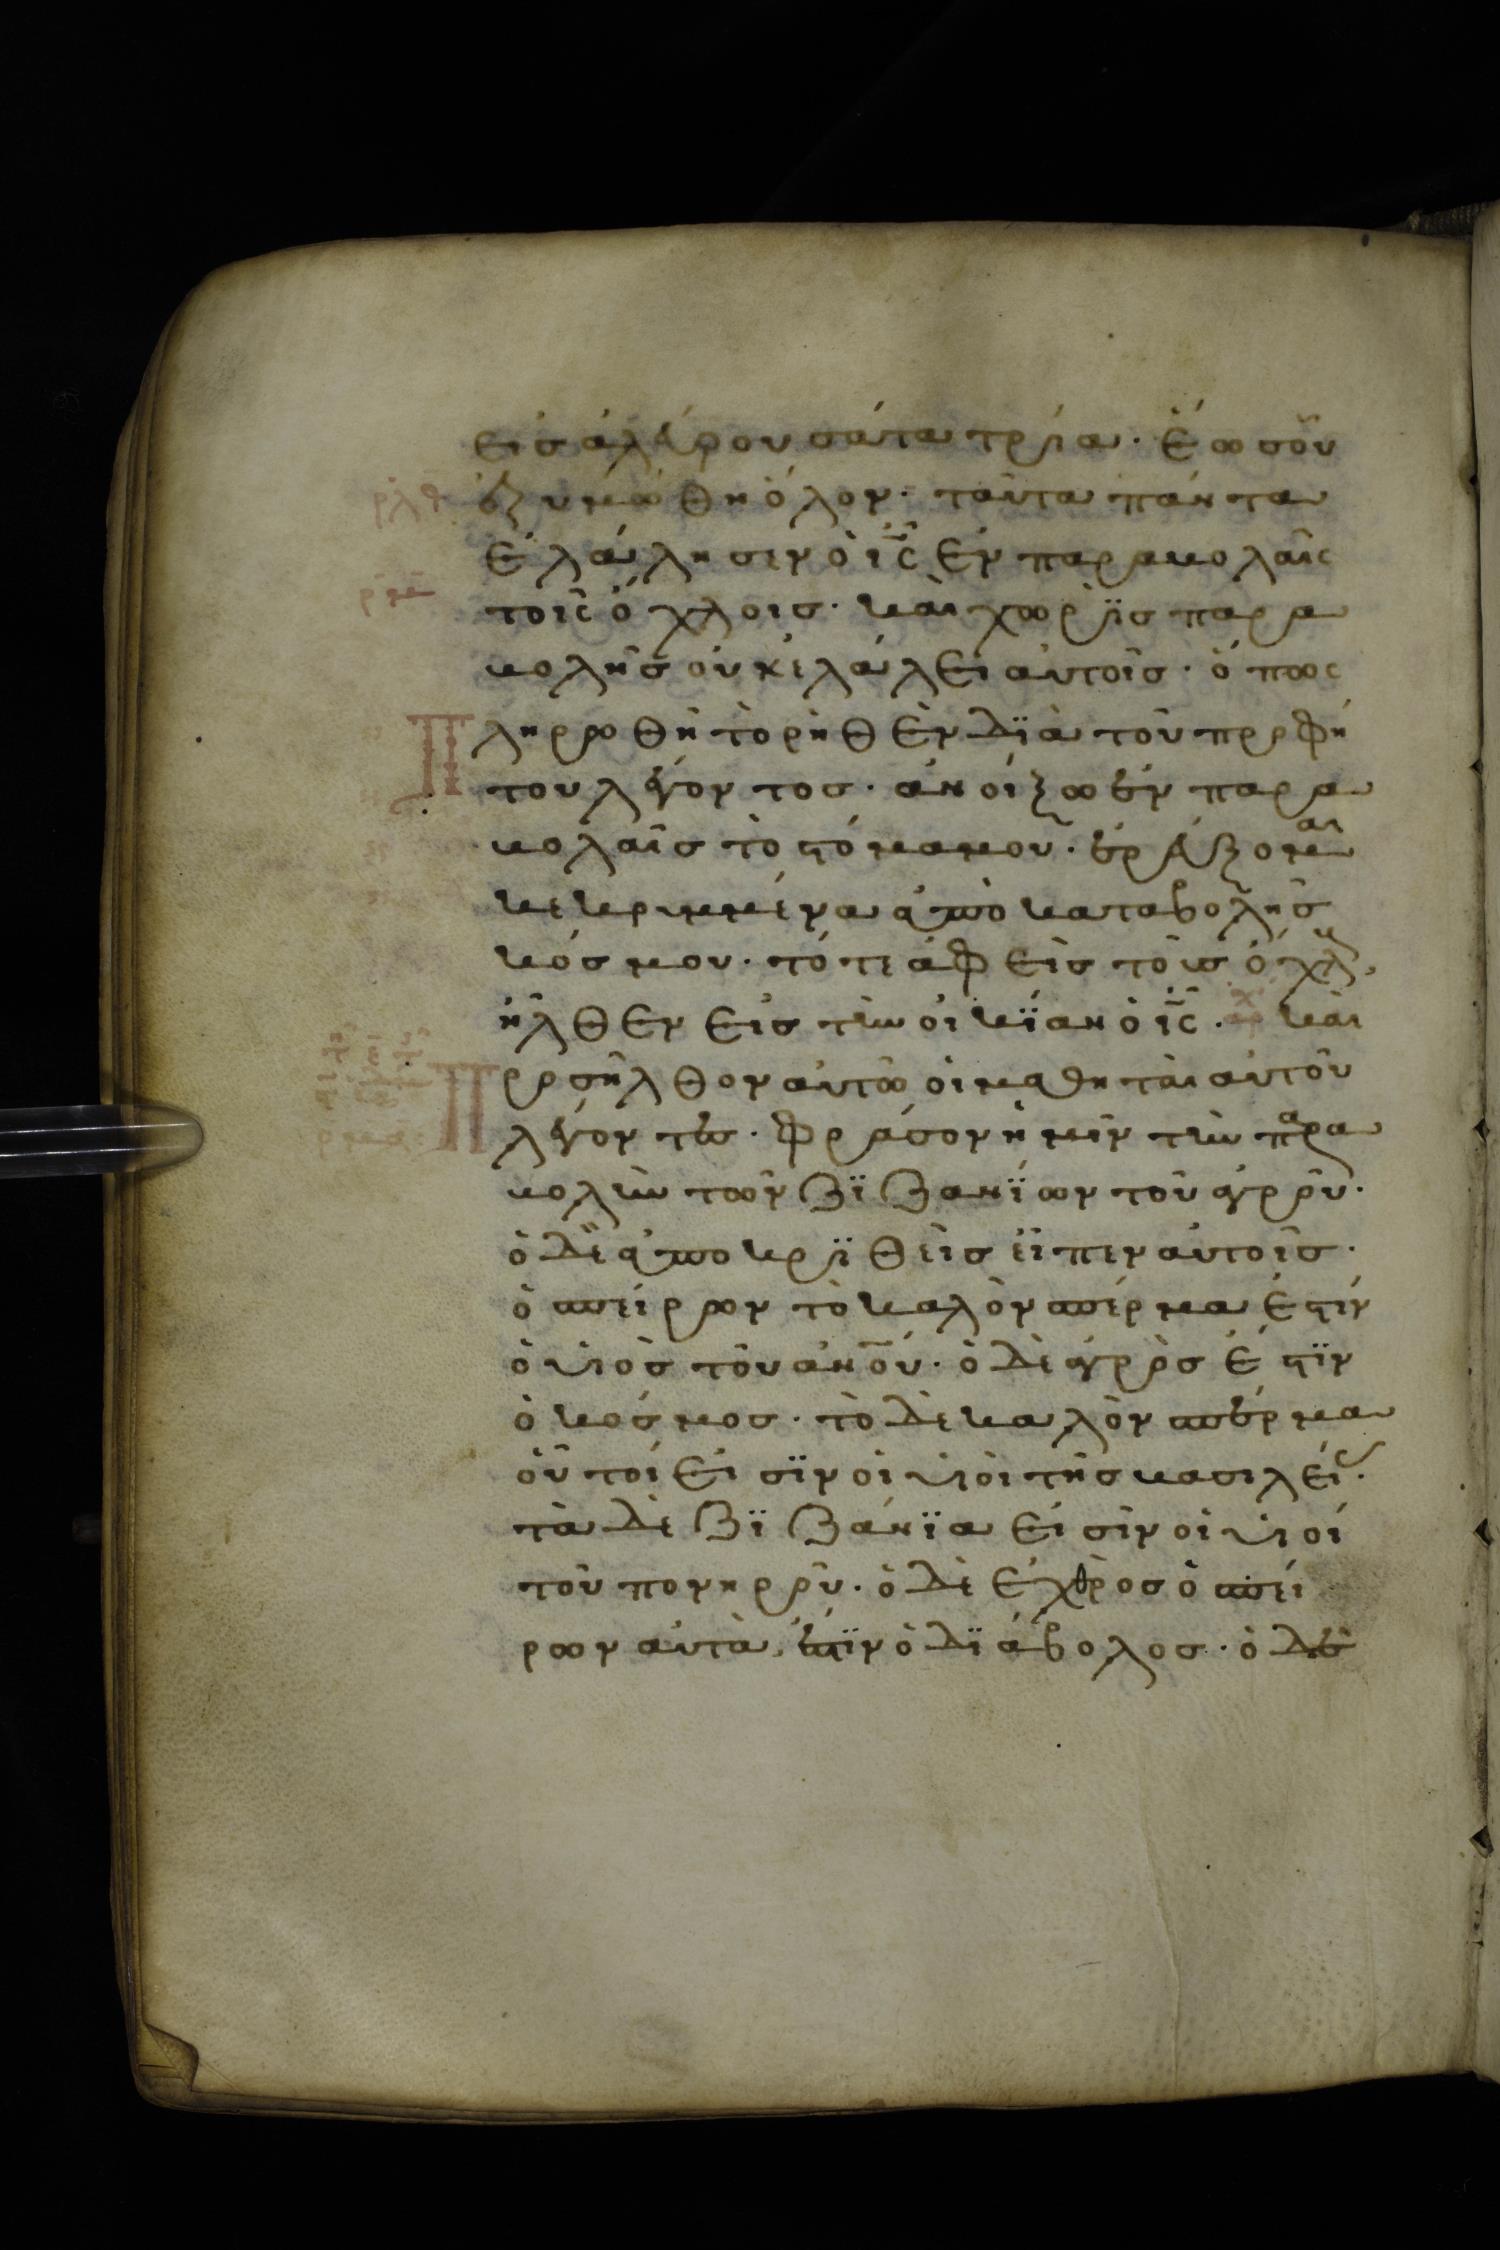 εἰς ἀλεύρου σάτα τρία· ἕως οὗ
ἐζυμώθη ὅλον· ταῦτα πάντα
ἐλάλησεν ὁ ι̅ς̅ ἐν παραβολαῖς
τοῖς ὄχλοις· καὶ χωρὶς παρα
βολῆς οὐκ ἐλάλει αὐτοῖς· ὅπως
Πληρωθῆ τὸ ρηθὲν διὰ τοῦ προφή
του λέγοντος· ἀνοίξω ἐν παρα
βολαῖς τὸ στόμα μου· ἐρεύξομαι
κεκρυμμένα ἀπὸ καταβολῆς
κόσμου· τότε ἀφεὶς τοὺς ὄχλους,
ἦλθεν εἰς τὴν οἰκΐαν ὁ ι̅ς̅· καὶ
Προσῆλθον αὐτῶ οἱ μαθηταὶ αὐτοῦ
λέγοντες· φράσον ἡμῖν τὴν παρα
βολὴν τῶν ζϊζανΐων τοῦ ἀγροῦ·
ὁ δὲ ἀποκρϊθεὶς εἶπεν αὐτοῖς·
ὁ σπείρων τὸ καλὸν σπέρμα ἐστὶν
ὁ υἱὸς τοῦ α̅ν̅ο̅υ̅· ὁ δὲ ἀγρὸς ἐστϊν
ὁ κόσμος· τὸ δὲ καλὸν σπέρμα
οὗτοί εἰσϊν οἱ υἱοὶ τῆς βασιλείας·
τὰ δὲ ζϊζάνϊα εἰσὶν οἱ υἱοὶ
τοῦ πονηροῦ· ὁ δὲ ἐχθρὸς ὁ σπεί
ρων αὐτὰ, ἐστϊν ὁ δϊάβολος· ὁ δὲ